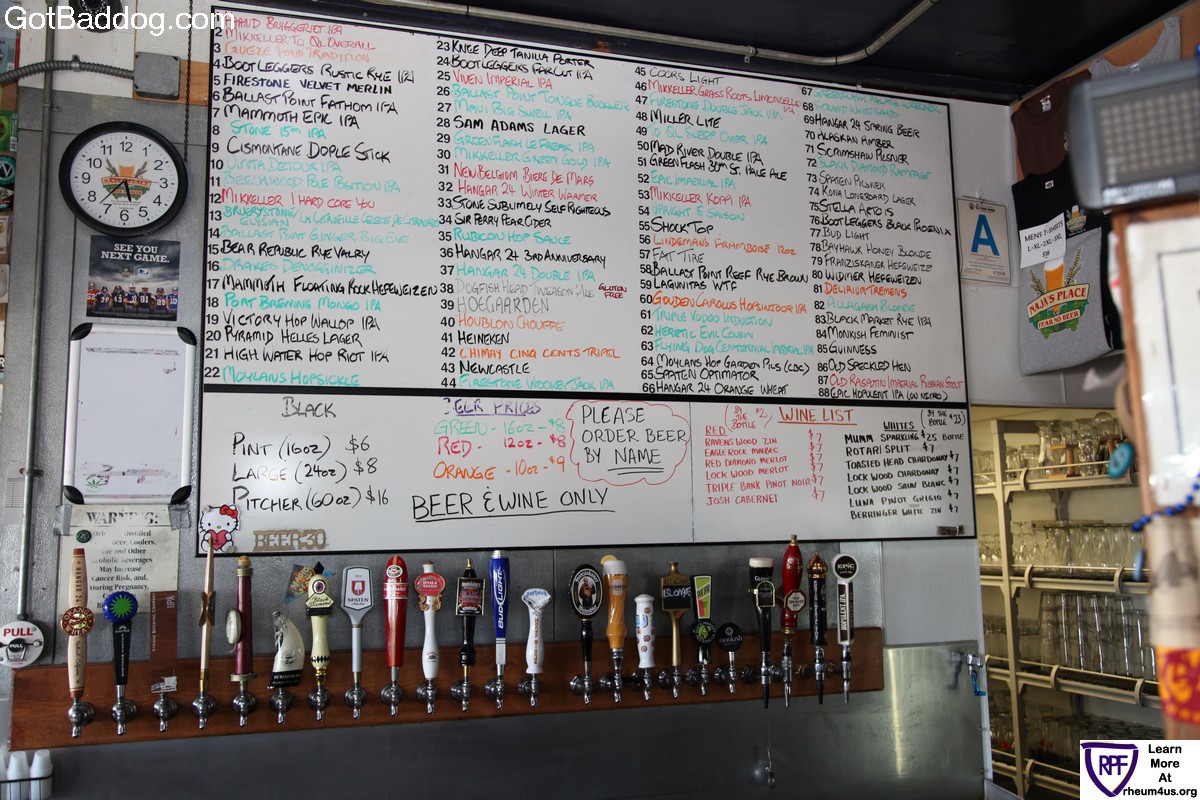 GotBaddog.com
2 MIKKELLER TO OL OVERALL
3
4 BOOTLEGGERS RUSTIC RYE IPA
5 FIRESTONE VELVET MERLIN
6 BALLAST POINT FATHOM IPA
7 MAMMOTH EPIC IPA
8 STONE 15th IPA
9 CISMONTANE DOPLE STICK
10 UINTA DETOUR IPA
11 BEECHWOOD POLE POSITION IPA
12 MIKKELLER I HARD CORE YOU
13 BRUERY STONE / LA CITRUEILLE CELESTE DE CITRACADO
ELYSIAN
14 BALLAST POINT GINGER BIG EYE
15 BEAR REPUBLIC RYE VALRY
16 DRAKES DENOGGINIZER
17 MAMMOTH FLOATING ROCK HEFEWEIZEN
18 PORT BREWING MONGO IPA
19 VICTORY HOP WALLOP IPA
20 PYRAMID HELLES LAGER
21 HIGH WATER HOP RIOT IPA
22 MOYLANS HOPSICKLE
23 KNEE DEEP TANILLA PORTER
24 BOOTLEGGERS FAR CUT IPA
25 VIVEN IMPERIAL IPA
26 BALLAST POINT TONGUE BUCKLER
27 MAUI BIG SWELL IPA
28 SAM ADAMS LAGER
29 GREEN FLASH LE FREAK IPA
30 MIKKELLER GREEN GOLD IPA
31 NEW BELGIUM BIERE DE MARS
32 HANGAR 24 WINTER WARMER
33 STONE SUBLIMELY SELF RIGHTEOUS
34 SIR PERRY PEAR CIDER
35 RUBICON HOP SAUCE
36 HANGAR 24 3RD ANNIVERSARY
37 HANGAR 24 DOUBLE IPA
38 DOGFISH HEAD TWEASON'ALE GLUTEN FREE
39 HOEGAARDEN
40 HOUBLON CHOUFFE
41 HEINEKEN
42 CHIMAY CINQ CENTS TRIPEL
43 NEWCASTLE
44 FIRESTONE WOOKEY JACK IPA
45 COORS LIGHT
46 MIKKELLER GRASS ROOTS LIMONCELLO IPA
47 FIRESTONE DOUBLE JACK IPA
48 MILLER LITE
49 TO OL SLEEP OVER IPA
50 MAD RIVER DOUBLE IPA
51 GREEN FLASH 30th ST. PALE ALE
52 EPIC IMPERIAL IPA
53 MIKKELLER KOPPI IPA
54 UPRIGHT 5 SAISON
55 SHOCK TOP
56 LINDEMANS FRAMBOISE 12oz
57 FAT TIRE
58 BALLAST POINT REEF RYE BROWN
59 LAGUNITAS WTF
60 GOUDEN CAROLUS HOPSINJOOR IPA
61 TRIPLE VOODOO INDUCTION
62 HERETIC EVIL COUSIN
63 FLYING DOG CENTENNIAL IMPERIAL IPA
64 MOYLANS HOP GARDEN PILS (CDC)
65 SPATEN OPTIMATOR
66 HANGAR 24 ORANGE WHEAT
67
68
69 HANGAR 24 SPRING BEER
70 ALASKAN AMBER
71 SCRIMSHAW PILSNER
72 BLACK DIAMOND RAMPAGE
73 SPATEN PILSNER
74 KONA LONGBOARD LAGER
75 STELLA ARTOIS
76 BOOTLEGGERS BLACK PHOENIX
77 BUD LIGHT
78 BAYHAWK HONEY BLONDE
79 FRANZISKANER HEFEWEIZE
80 WIDMER HEFEWEIZEN
81 DELIRIUM TREMENS
82 ALLAGASH BLONDE
83 BLACK MARKET RYE IPA
84 MONKISH FEMINIST
85 GUINNESS
86 OLD SPECKLED HEN
87 OLD RASPUTIN IMPERIAL RUSSIAN STOUT
88 EPIC HOPULENT IPA (ON NITRO)
BLACK
PINT (16oz) $6
LARGE (24oz) $8
PITCHER (60oz) $16
BEER PRICES
GREEN - 16oz - $8
RED - 12oz - $8
ORANGE - 10oz - $9
BEER & WINE ONLY
PLEASE
ORDER BEER
BY NAME
WINE LIST
RED (BY THE BOTTLE $2)
RAVENS WOOD ZIN $7
EAGLE ROCK MALBEC $7
RED DIAMOND MERLOT $7
LOCK WOOD MERLOT $7
TRIPLE BANK PINOT NOIR $7
JOSH CABERNET $7
WHITES (BY THE BOTTLE $23)
MUMM SPARKLING $25 BOTTLE
ROTARI SPLIT $7
TOASTED HEAD CHARDONAY $7
LOCK WOOD CHARDONAY $7
LOCK WOOD SAUV BLANC $7
LUNA PINOT GRIGIO $7
BERRINGER WHITE ZIN $7
12 1 2 3 4 5 6 7 8 9 10 11
NAJA'S PLACE
SEE YOU
NEXT GAME.
WARNING:
Beer, Coolers,
Wine and Other
Alcoholic Beverages
May Increase
Cancer Risk, and,
During Pregnancy,
BEER30
PULL
A
MEN'S T-SHIRTS
L-XL-2XL-3XL
NAJA'S PLACE
SPATEN
BUD LIGHT
BLONDE
EPIC
RPF
Learn
More
At
rheum4us.org